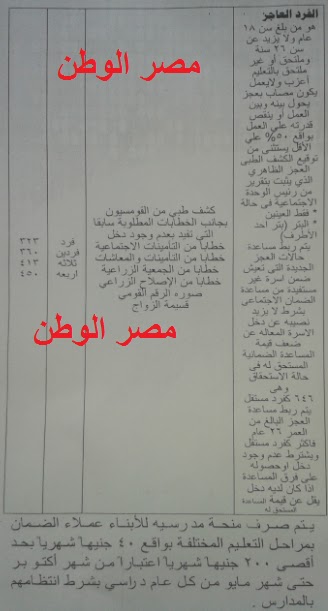 الفرد العاجز
هو من بلغ سن ١٨
عام ولا يزيد عن
سن ٢٦ سنة
وملتحق أو غير
ملتحق بالتعليم
أعزب ولايعمل
يكون مصاب بعجز
يحول بينه وبين
العمل أو ينقص
قدرته علي العمل
بواقع ٥٠% علي
الأقل يستثني من
توقيع الكشف الطبي
العجز الظاهري
الذي يثبت بتقرير
من رئيس الوحدة
الاجتماعية فى حالة
* فقط العينين
* البتر (بتر أحد
الأطرف)
يتم ربط مساعدة
حالات العجز
الجديدة التى تعيش
ضمن أسرة غير
مستفيدة من مساعدة
الضمان الاجتماعي
بشرط لا يزيد
نصيبه عن دخل
الاسرة المعاله عن
ضعف قيمة
المساعدة الضمانية
المستحق له فى
حالة الاستحقاق
وهى
٦٤٦ كفرد مستقل
يتم ربط مساعدة
العجز البالغ من
العمر ٢٦ عام
فأكثر كفرد مستقل
ويشترط عدم وجود
دخل اوحصوله
على فرق المساعدة
اذا كان لديه دخل
يقل عن قيمة المساعدة
المستحق له
كشف طبي من القومسيون
بجانب الخطابات المطلوبة سابقا
التى تفيد بعدم وجود دخل
خطابا من التأمينات الاجتماعية
خطابا من التأمينات و المعاشات
خطابا من الجمعية الزراعية
خطابا من الإصلاح الزراعي
صوره الرقم القومى
قسيمة الزواج
فرد ٣٢٣
فردين ٣٦٠
ثلاثه ٤١٣
اربعه ٤٥٠
مصر الوطن
مصر الوطن
يتم صرف منحة مدرسيه للأبناء عملاء الضمان
بمراحل التعليم المختلفة بواقع ٤٠ جنيها شهريا بحد
أقصى ٢٠٠ جنيها شهريا اعتبارا من شهر أكتوبر
حتى شهر مايو من كل عام دراسي بشرط انتظامهم
بالمدارس .